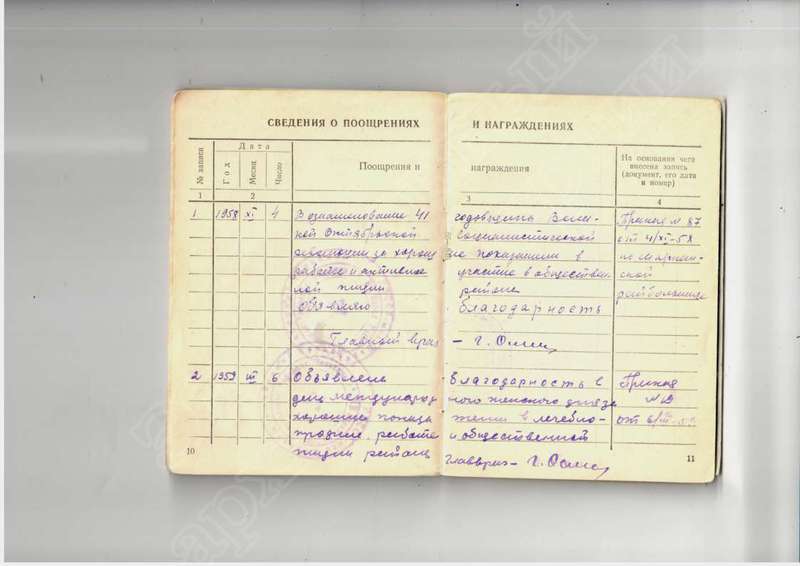 СВЕДЕНИЯ О ПООЩРЕНИЯХ И НАГРАЖДЕНИЯХ
№ записи
Дата
Год
Месяц
Число
Поощрения и награждения
На основании чего
внесена запись
(документ, его дата
и номер)
1 2 3 4
1 1958 XI 4 В ознаменование 41 годовщины Вели-
кой Октябрьской социалистической
революции за хорош
работе и активное участие в обществен
ной жизни района
объявляю благодарность
Главный врач
Приказ № 87
от 4/XI-58
2 1959 III 6 Объявлена благодарность в
день международ ного женского дня за
хорошие в лечебно-
работе и общественной
жизни района главврач
Приказ
от 6/III-59
10
11